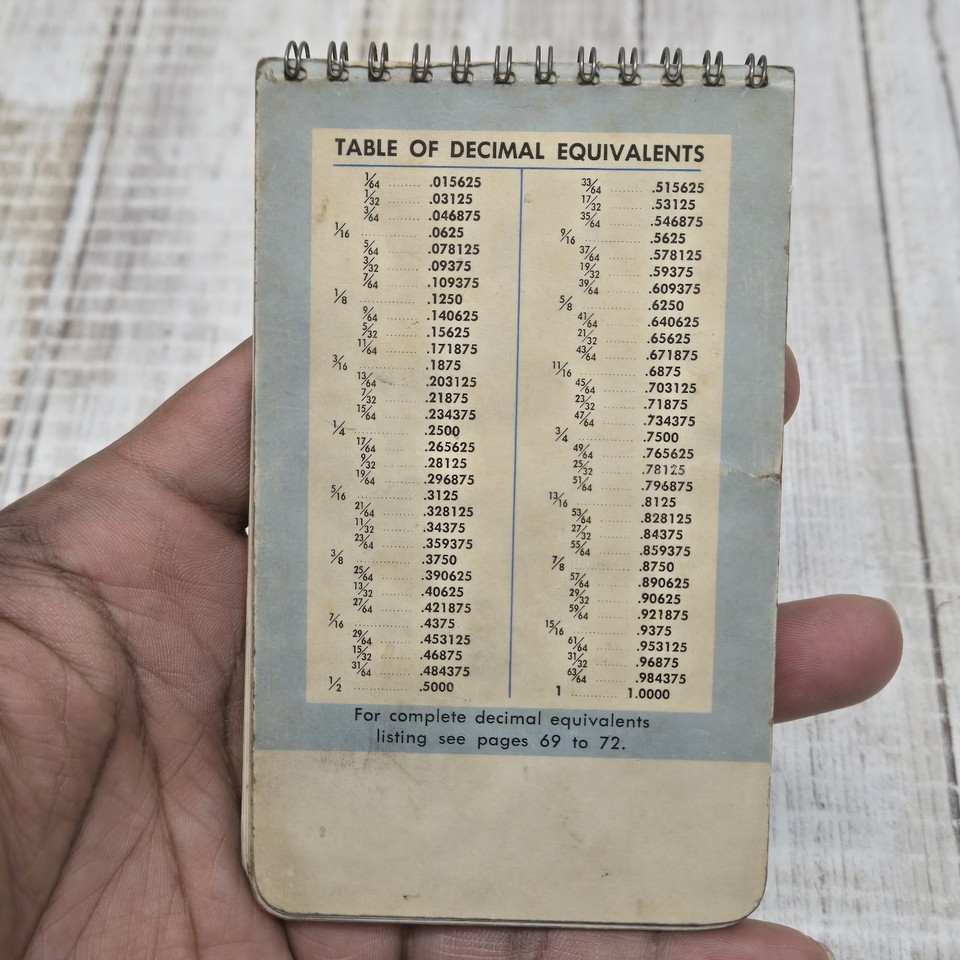 TABLE OF DECIMAL EQUIVALENTS
1/64 ........ .015625
1/32 ........ .03125
3/64 ........ .046875
1/16 ................ .0625
5/64 ........ .078125
3/32 ........ .09375
7/64 ........ .109375
1/8 ................ .1250
9/64 ........ .140625
5/32 ........ .15625
11/64 ........ .171875
3/16 ................ .1875
13/64 ........ .203125
7/32 ........ .21875
15/64 ........ .234375
1/4 ................ .2500
17/64 ........ .265625
9/32 ........ .28125
19/64 ........ .296875
5/16 ................ .3125
21/64 ........ .328125
11/32 ........ .34375
23/64 ........ .359375
3/8 ................ .3750
25/64 ........ .390625
13/32 ........ .40625
27/64 ........ .421875
7/16 ................ .4375
29/64 ........ .453125
15/32 ........ .46875
31/64 ........ .484375
1/2 ................ .5000
33/64 ........ .515625
17/32 ........ .53125
35/64 ........ .546875
9/16 ................ .5625
37/64 ........ .578125
19/32 ........ .59375
39/64 ........ .609375
5/8 ................ .6250
41/64 ........ .640625
21/32 ........ .65625
43/64 ........ .671875
11/16 ................ .6875
45/64 ........ .703125
23/32 ........ .71875
47/64 ........ .734375
3/4 ................ .7500
49/64 ........ .765625
25/32 ........ .78125
51/64 ........ .796875
13/16 ................ .8125
53/64 ........ .828125
27/32 ........ .84375
55/64 ........ .859375
7/8 ................ .8750
57/64 ........ .890625
29/32 ........ .90625
59/64 ........ .921875
15/16 ................ .9375
61/64 ........ .953125
31/32 ........ .96875
63/64 ........ .984375
1 ............ 1.0000
For complete decimal equivalents
listing see pages 69 to 72.